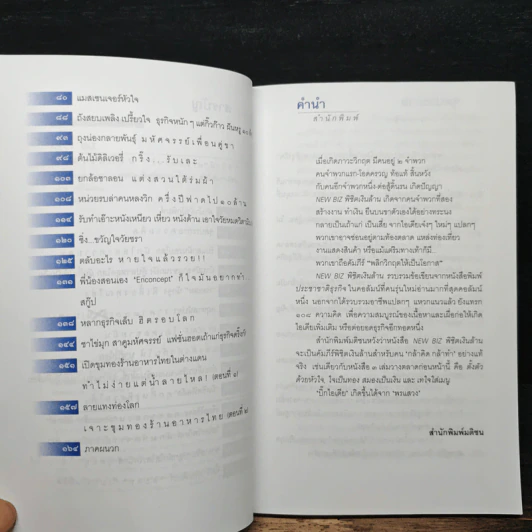 ๘๐ แมสเซนเจอร์หัวใจ
๘๘ ถังสยบเพลิง เปรี้ยวใจ ธุรกิจหนัก ๆ แต่กิ๊วก๊าว
๙๓ ถุงน่องกลายพันธุ์ มหัศจรรย์เพื่อนคู่ขา
๙๘ ต้นไม้ดิลิเวอรี่ กริ๊ง...รับเละ
๑๐๓ ยกล้อซาลอน แต่งสวนใต้ร่มผ้า
๑๐๘ หน่วยรบล่าคนหลงวิก ครึ่งปีฟาดไป ๒๐ ล้าน
๑๑๔ รับทำเอ๊าะหนังเหนียว เหี่ยว หนังด้าน เอาใจวัย
๑๒๐ ซึ่ง...ขวัญใจวัยชรา
๑๒๗ ตลับอะไร หายใจแล้วรวย!!
๑๓๓ พี่น้องสอนเอง "Enconcept" ก็ใจมันอยากทำ...
สกู๊ป
๑๓๘ หลากธุรกิจเล็บ ฮิตรอบโลก
๑๔๔ ชาไข่มุก สาคูมหัศจรรย์ แฟชั่นฮอตเถ้าแก่ธุรกิจครึ่งทวีป
๑๕๑ เปิดขุมทองร้านอาหารไทยในต่างแดน
ทำไม่ง่ายแต่น้ำลายไหล! (ตอนที่ ๑)
๑๕๗ ลายแทงท่องโลก
เจาะขุมทองร้านอาหารไทย (ตอนที่ ๒)
๑๖๔ ภาคผนวก
คำนำ
สำนักพิมพ์
เมื่อเกิดภาวะวิกฤต มีคนอยู่ ๒ จำพวก
คนจำพวกแรก-โอดครวญ ท้อแท้ สิ้นหวัง
กับคนอีกจำพวกหนึ่ง-ต่อสู้ดิ้นรน เกิดปัญญา
NEW BIZ พิชิตเงินล้าน เกิดจากคนจำพวกที่สอง
สร้างงาน ทำเงิน ยืนบนขาตัวเองได้อย่างทระนง
กลายเป็นเถ้าแก่ เป็นเสี่ย จากไอเดียเจ๋งๆ ใหม่ๆ แปลกๆ
พวกเขาอาจซ่อนอยู่ตามท้องตลาด แหล่งท่องเที่ยว
งานแสดงสินค้า หรือแม้แต่ริมทางเท้าก็มี
พวกเขาถือคัมภีร์ "พลิกวิกฤตให้เป็นโอกาส"
NEW BIZ พิชิตเงินล้าน รวบรวมข้อเขียนจากหนังสือพิมพ์
ประชาชาติธุรกิจ ในคอลัมน์ที่คนรุ่นใหม่อ่านมากที่สุดคอลัมน์
หนึ่ง นอกจากได้รวบรวมอาชีพแปลกๆ แหวกแนวแล้ว ยังแทรก
๑๐๘ ความคิด เพื่อความสมบูรณ์ของเนื้อหาและเผื่อก่อให้เกิด
ไอเดียเพิ่มเติม หรือต่อยอดธุรกิจอีกทอดหนึ่ง
สำนักพิมพ์มติชนหวังว่าหนังสือ NEW BIZ พิชิตเงินล้าน
จะเป็นคัมภีร์พิชิตเงินล้านสำหรับคน "กล้าคิด กล้าทำ" อย่างแท้
จริง เช่นเดียวกับหนังสือ ๓ เล่มวางตลาดก่อนหน้านี้ คือ ตั้งตัว
ด้วยหัวใจ, ใจเป็นทอง สมองเป็นเงิน และ เทใจใส่เมนู
"บิ๊กไอเดีย" เกิดขึ้นได้จาก "พรแสวง"
สำนักพิมพ์มติชน